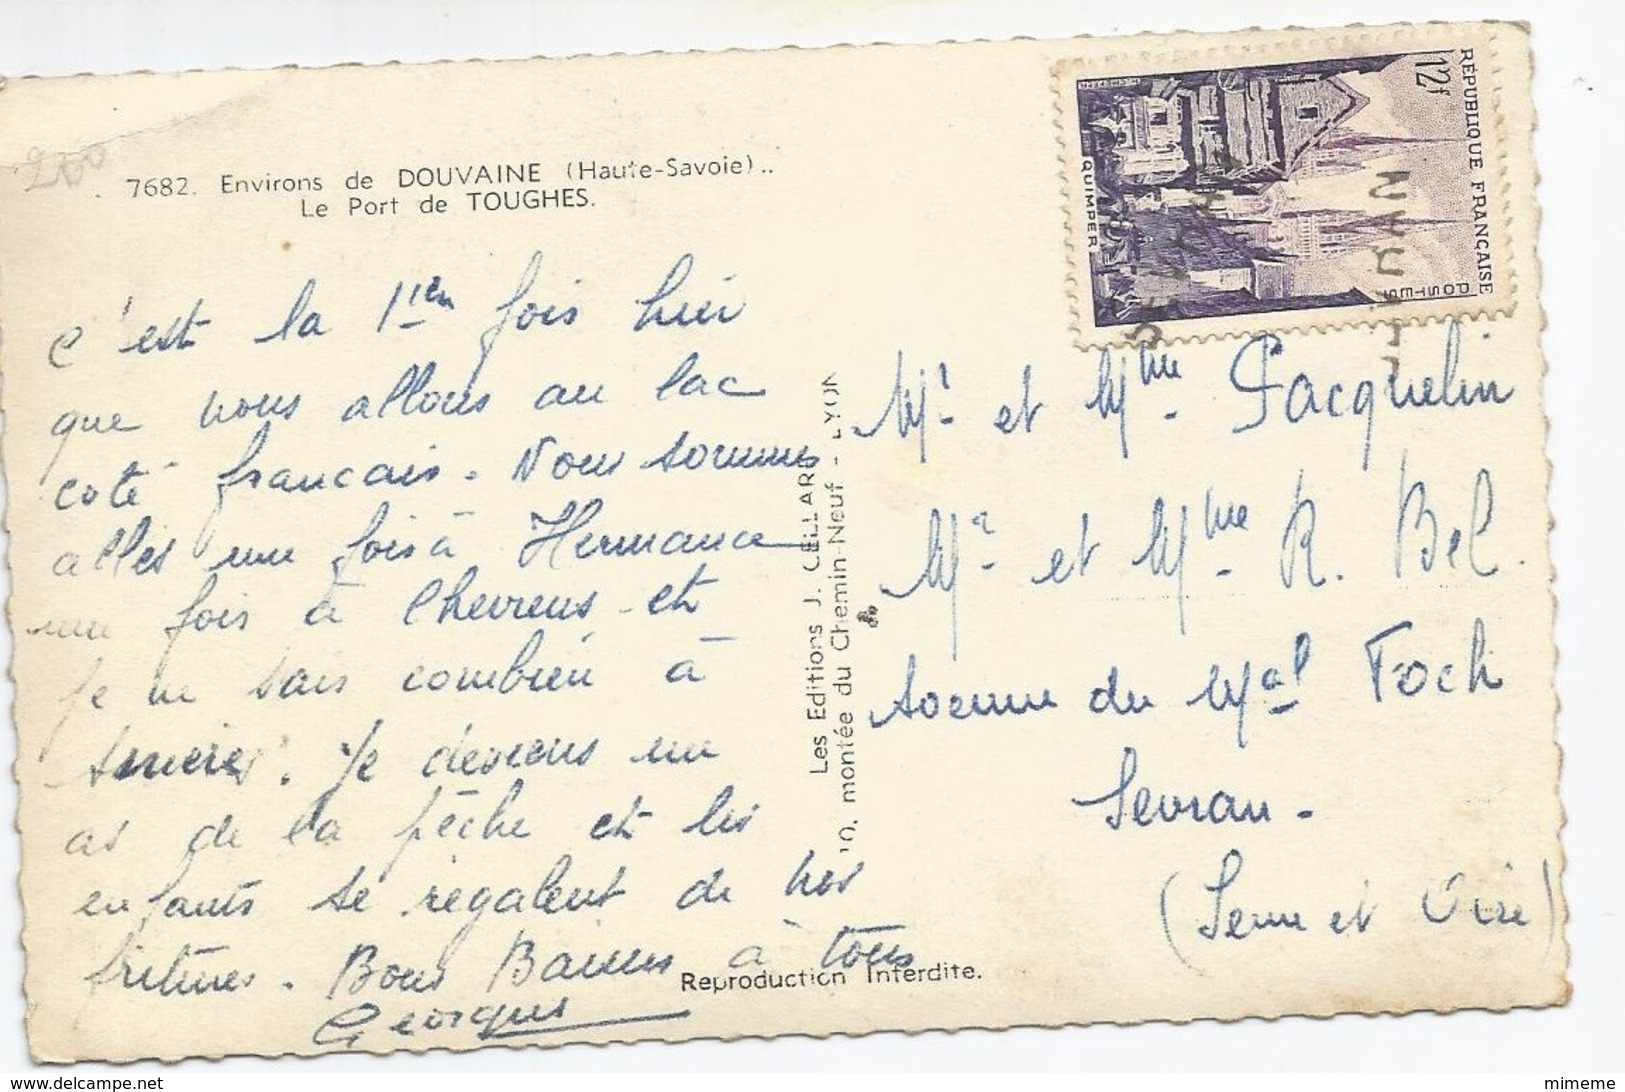 200
7682. Environs de DOUVAINE (Haute-Savoie)..
Le Port de TOUGHES.
C'est la 1ien fois hier
que nous allons au lac
coté francais. Nous sommes
alles une fois à Hermance
une fois à Chevrens et
je ne sais combien à
Anieres. Je deviens un
as de la pêche et les
enfants se régalent de nos
fritures. Bons Baisers à tous
Georges
Reproduction Interdite.
Les Editions J. CELLARD
10, montée du Chemin-Neuf - LYON
RÉPUBLIQUE FRANÇAISE
POSTES
12f
QUIMPER
Mr et Mme Jacquelin
Mr et Mme R. Bel.
Avenue du Mal Foch
Sevran.
(Seine et Oise)
delcampe.net
mimeme